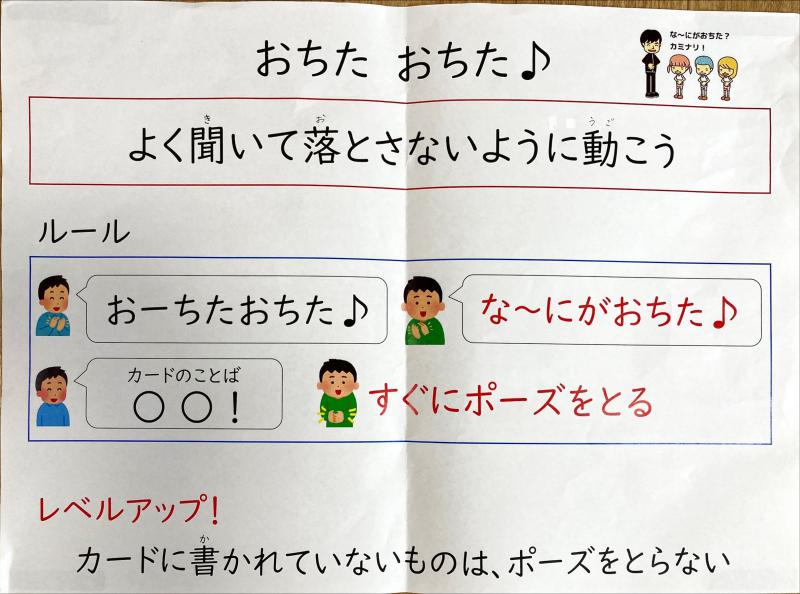 おちた おちた♪
な〜にがおちた?
カミナリ!
よく聞いて落とさないように動こう
き お うご
ルール
おーちたおちた♪
な〜にがおちた♪
カードのことば
〇 〇!
すぐにポーズをとる
レベルアップ!
か
カードに書かれていないものは、ポーズをとらない